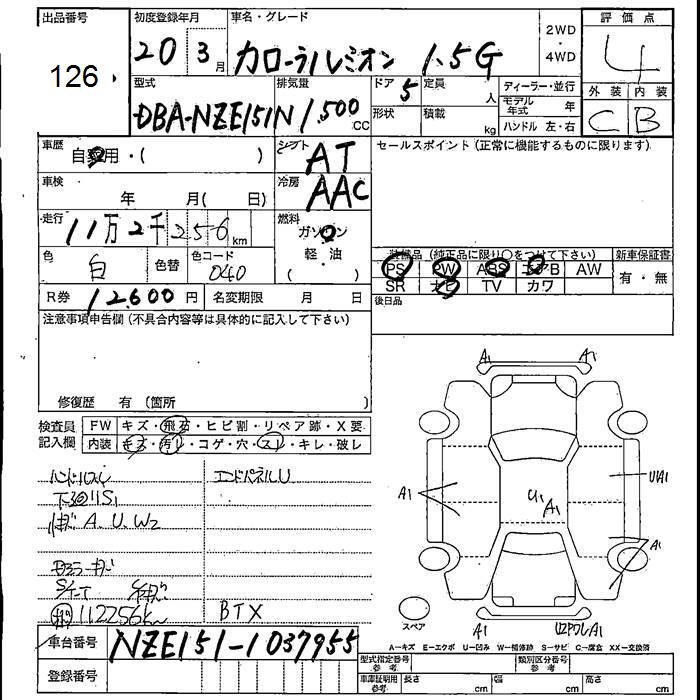 出品番号
126
初度登録年月
20 3月
車名・グレード
カローラルミオン 1.5G
2WD
・
4WD
評価点
4
型式
DBA-NZE151N
排気量
1,500 CC
ドア
5
形状
定員
人
積載
kg
ディーラー・並行
モデル年式 年
ハンドル 左・右
外装 内装
C B
車歴
自家用・( )
シフト
AT
セールスポイント (正常に機能するものに限ります)
車検
年 月( 日)
冷房
AAC
走行
11万2千256km
燃料
ガソリン
軽・油
( )
色
白
色替
色コード
040
装備品 (純正品に限り〇をつけて下さい)
新車保証書
PS PW ABS エアB AW
有・無
SR ナビ TV カワ
後日品
R券 12,600円
名変期限 月 日
注意事項申告欄 (不具合内容等は具体的に記入して下さい)
修復歴 有 (箇所 )
検査員記入欄
FW キズ・飛石・ヒビ割・リペア跡・X要
内装 キズ・汚れ・コゲ・穴・スレ・キレ・破レ
ハンドルスレ
エンドパネルU
下廻りS1
A、U、W2
112256km
BTX
A1 A1
A1
U1
A1
U1A1
A1
スペア
A1
U2 A1
A=キズ E=エクボ U=凹み W=補修跡 S=サビ C=腐食 XX=交換済
車台番号 NZE151-1037955
登録番号
型式指定番号
参考
類別区分番号
参考
車庫証明用
参考
長さ cm
幅 cm
高さ cm